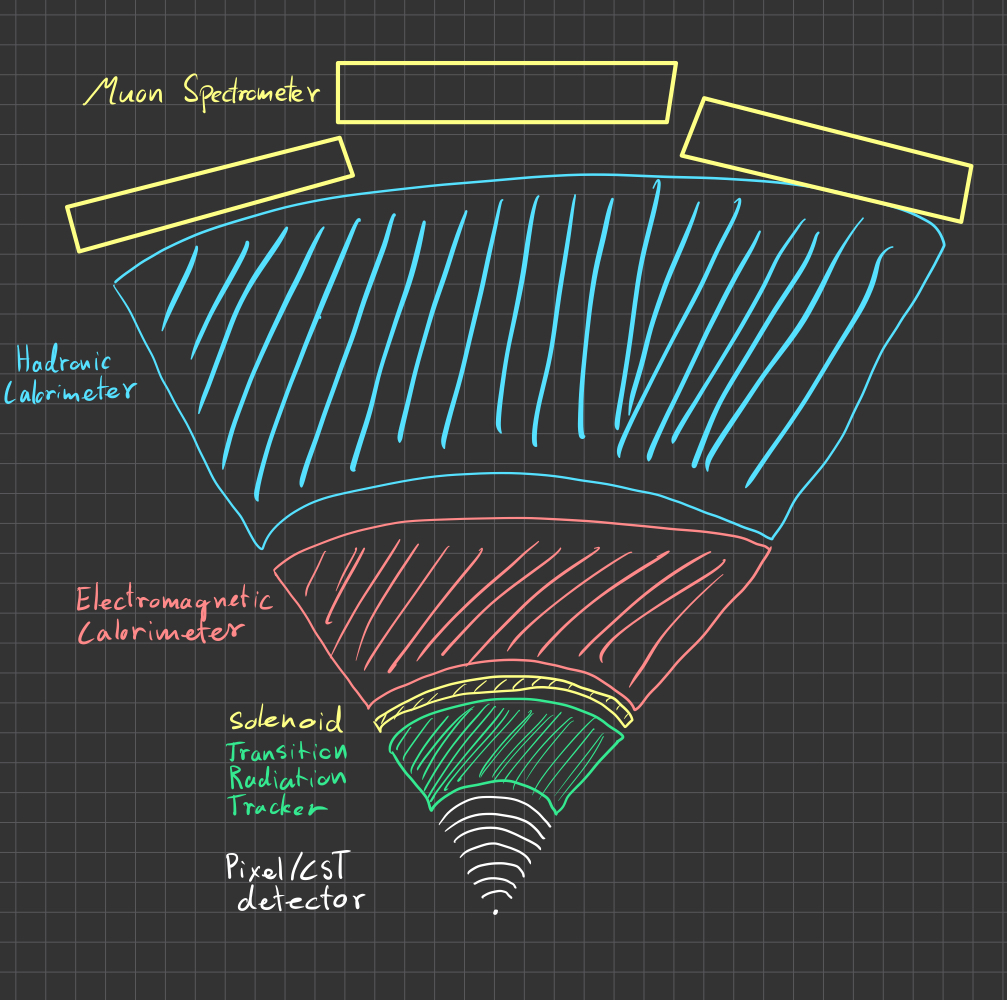 Muon Spectrometer
Hadronic
Calorimeter
Electromagnetic
Calorimeter
Solenoid
Transition
Radiation
Tracker
Pixel/CST
detector